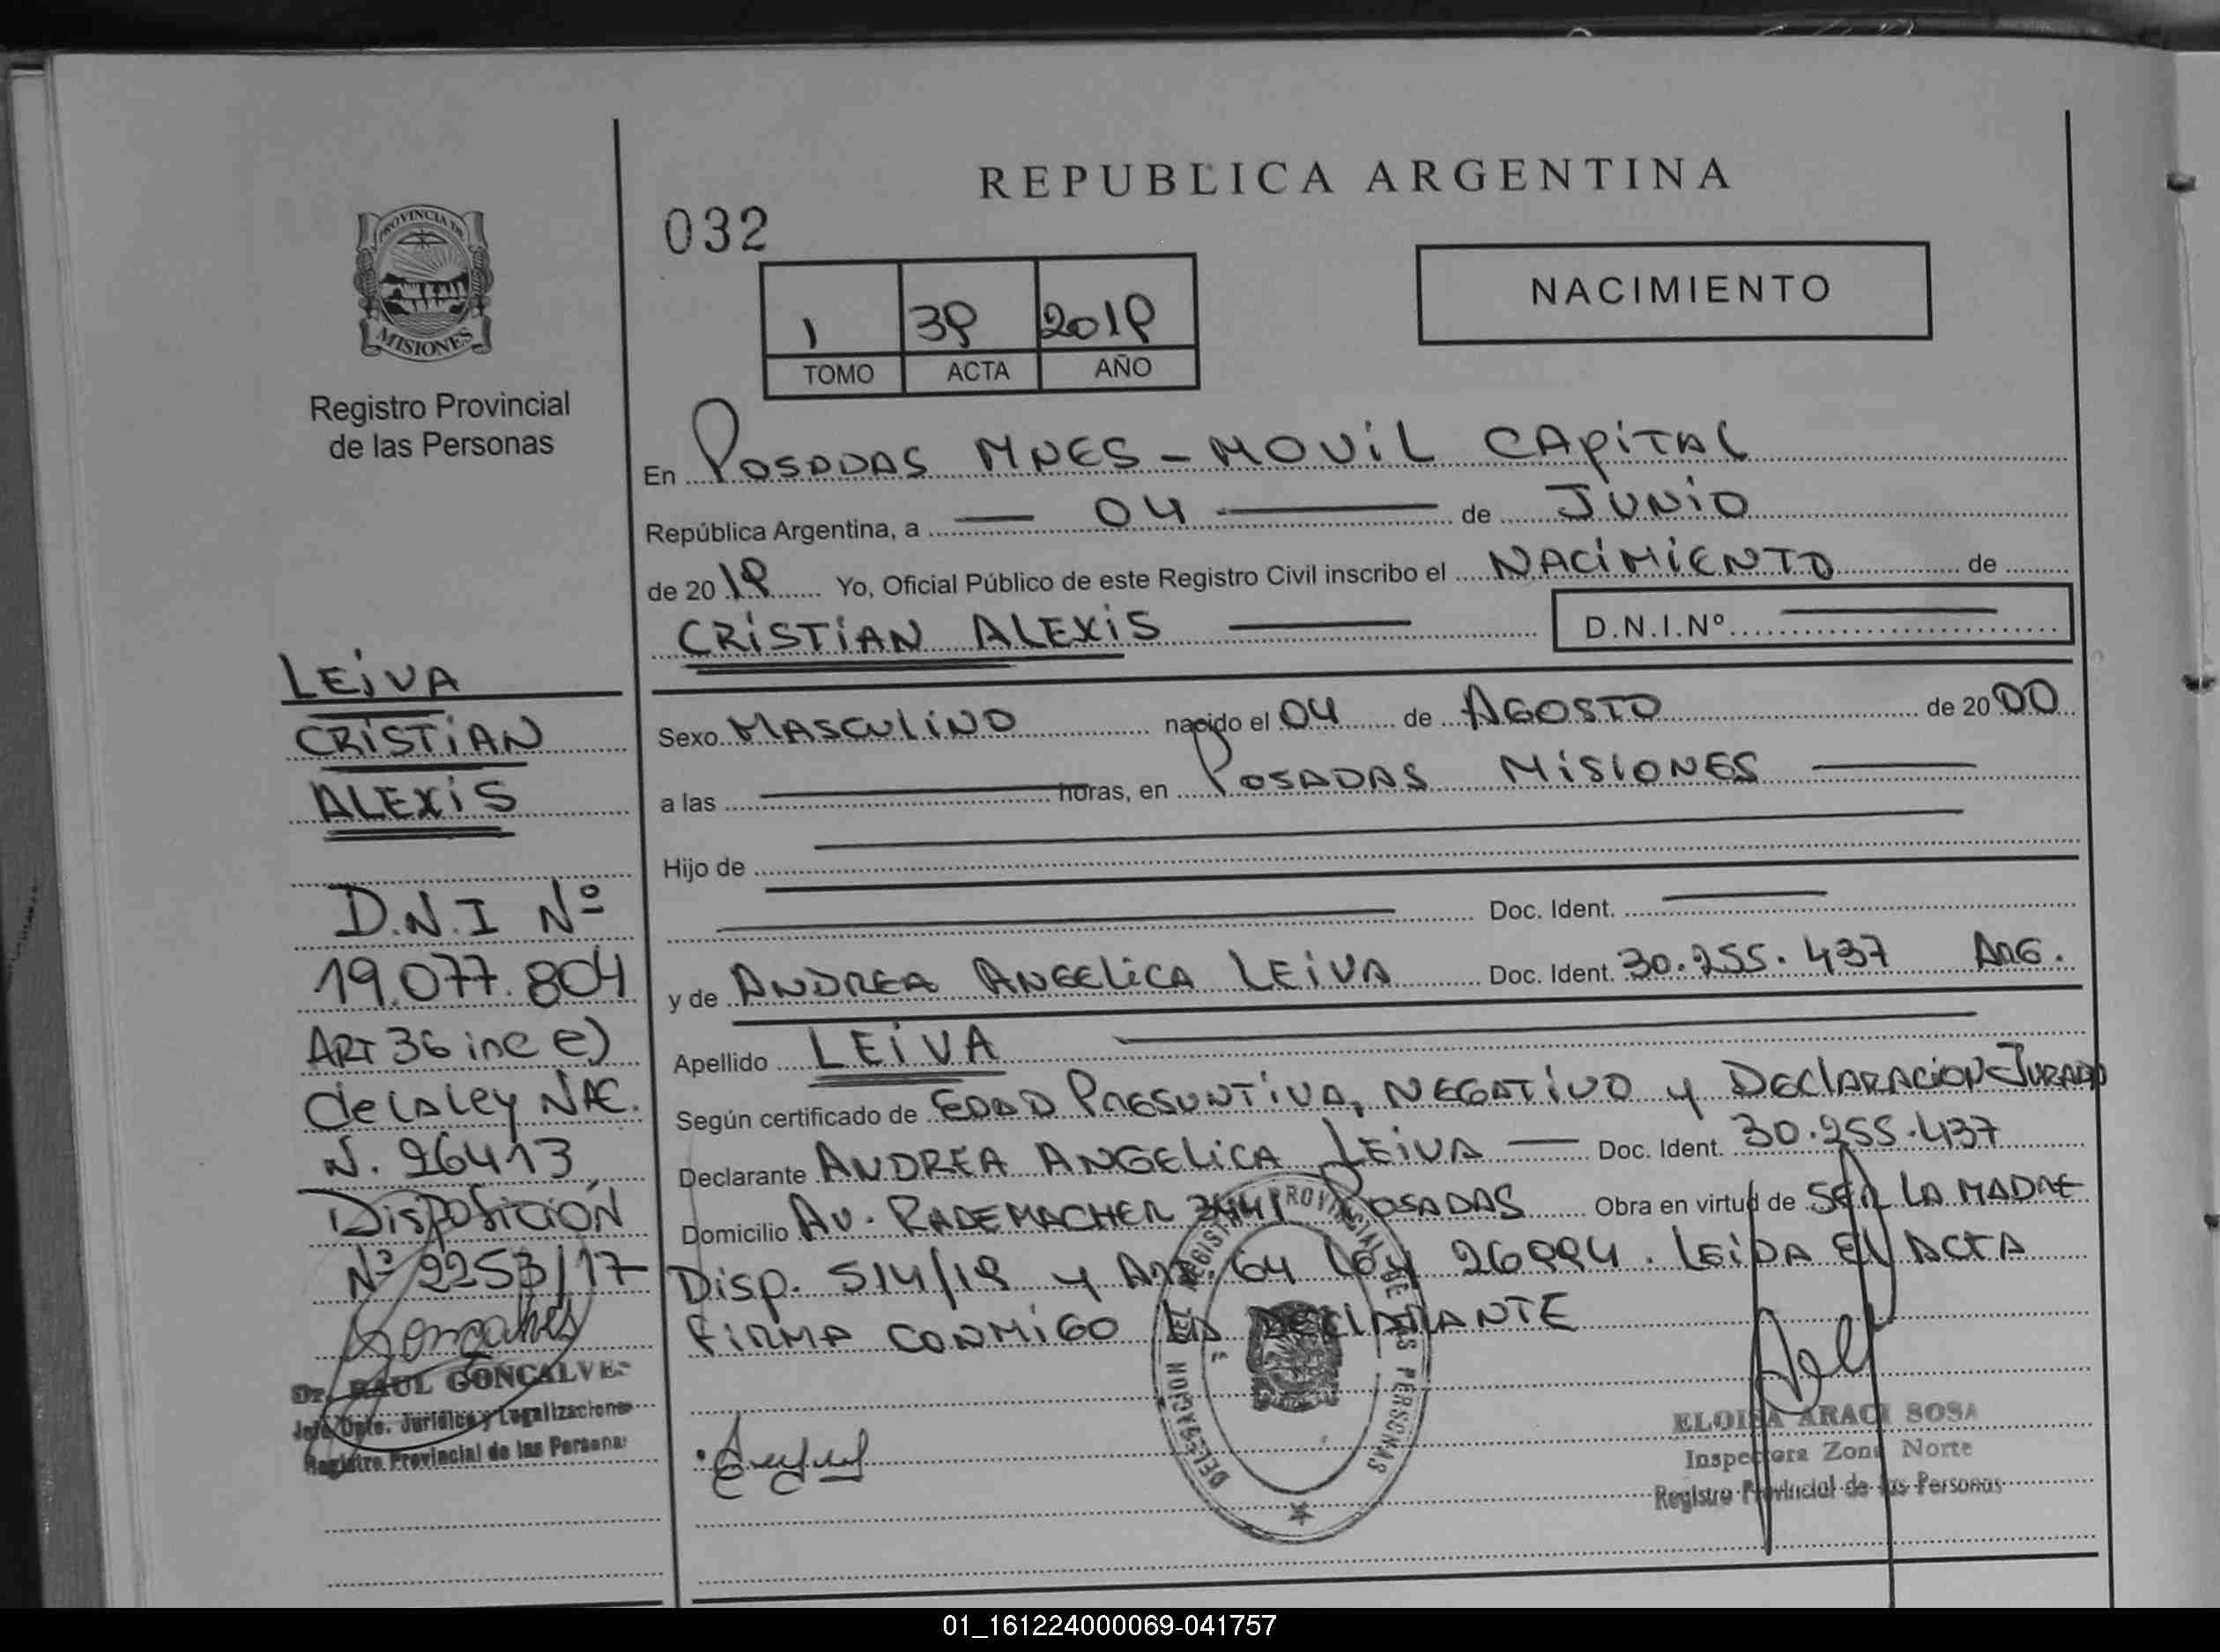 REPUBLICA ARGENTINA
032
NACIMIENTO
1 39 2019
TOMO ACTA AÑO
PROVINCIA DE
MISIONES
Registro Provincial
de las Personas
En POSADAS MNES - MOVIL CAPITAL
República Argentina, a 04 de JUNIO
de 2019 Yo, Oficial Público de este Registro Civil inscribo el NACIMIENTO de
CRISTIAN ALEXIS D.N.I.Nº
LEIVA
CRISTIAN
ALEXIS
D.N.I Nº
19.077.804
ART 36 inc e)
de la Ley NAC.
N. 26413
Disposición
Nº 2253/17
Goncalves
Dr. RAUL GONCALVES
Jefe Dpto. Jurídico y Legalizaciones
Registro Provincial de las Personas
Sexo MASCULINO nacido el 04 de AGOSTO de 2000
a las horas, en POSADAS MISIONES
Hijo de
Doc. Ident.
y de ANDREA ANGELICA LEIVA Doc. Ident. 30.255.437 ARG.
Apellido LEIVA
Según certificado de EDAD PRESUNTIVA, NEGATIVO y DECLARACION JURADA
Declarante ANDREA ANGELICA LEIVA Doc. Ident. 30.255.437
Domicilio AV. RADEMACHER 3441 POSADAS Obra en virtud de SER LA MADRE
Disp. 514/19 y ART. 64 Ley 26994. LEIDA EL ACTA
FIRMA CONMIGO LA DECLARANTE
DELEGACION DEL REGISTRO PROVINCIAL DE LAS PERSONAS
ELOISA ARACI SOSA
Inspectora Zona Norte
Registro Provincial de las Personas
01_161224000069-041757